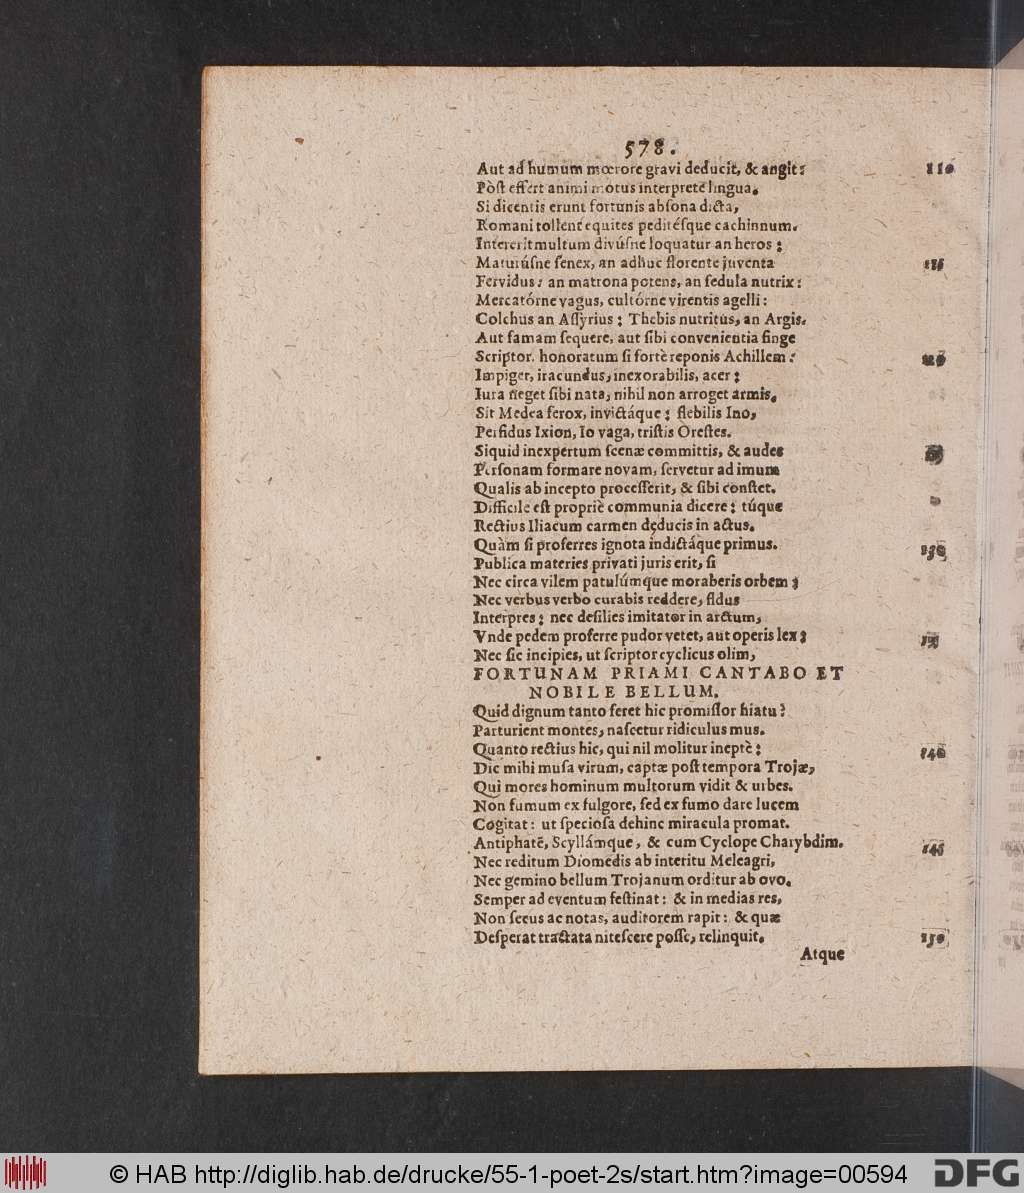 578.
Aut ad humum mœrore gravi deducit, & angit: 110
Pòſt effert animi motus interprete lingua.
Si dicentis erunt fortunis abſona dicta,
Romani tollent equites peditéſque cachinnum.
Intererit multum divúſne loquatur an heros:
Maturúſne ſenex, an adhuc florente juventa 115
Fervidus: an matrona potens, an ſedula nutrix:
Mercatórne vagus, cultórne virentis agelli:
Colchus an Aſſyrius: Thebis nutritus, an Argis.
Aut famam ſequere, aut ſibi convenientia finge
Scriptor. honoratum ſi fortè reponis Achillem: 120
Impiger, iracundus, inexorabilis, acer:
Iura neget ſibi nata, nihil non arroget armis.
Sit Medea ferox, invictáque: flebilis Ino,
Perfidus Ixion, Io vaga, triſtis Oreſtes.
Siquid inexpertum ſcenæ committis, & audes
Perſonam formare novam, ſervetur ad imum
Qualis ab incepto proceſſerit, & ſibi conſtet.
Difficile eſt propriè communia dicere: túque
Rectius Iliacum carmen deducis in actus.
Quàm ſi proferres ignota indictáque primus. 130
Publica materies privati juris erit, ſi
Nec circa vilem patulúmque moraberis orbem;
Nec verbus verbo curabis reddere, fidus
Interpres: nec deſilies imitator in arctum,
Vnde pedem proferre pudor vetet, aut operis lex: 135
Nec ſic incipies, ut ſcriptor cyclicus olim,
FORTUNAM PRIAMI CANTABO ET
NOBILE BELLUM.
Quid dignum tanto feret hic promiſſor hiatu?
Parturient montes, naſcetur ridiculus mus.
Quanto rectius hic, qui nil molitur ineptè: 140
Dic mihi muſa virum, captæ poſt tempora Trojæ,
Qui mores hominum multorum vidit & urbes.
Non fumum ex fulgore, ſed ex fumo dare lucem
Cogitat: ut ſpecioſa dehinc miracula promat.
Antiphatē, Scyllámque, & cum Cyclope Charybdim. 145
Nec reditum Diomedis ab interitu Meleagri,
Nec gemino bellum Trojanum orditur ab ovo.
Semper ad eventum feſtinat: & in medias res,
Non ſecus ac notas, auditorem rapit: & quæ
Deſperat tractata niteſcere poſſe, relinquit. 150
Atque
© HAB http://diglib.hab.de/drucke/55-1-poet-2s/start.htm?image=00594
DFG